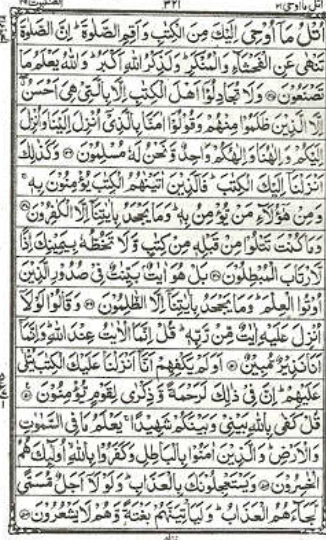 اتل ما اوحی ۲۱
۳۲۱
العنکبوت ۲۹
اُتْلُ مَآ اُوْحِیَ اِلَیْكَ مِنَ الْكِتٰبِ وَاَقِمِ الصَّلٰوةَ ؕ اِنَّ الصَّلٰوةَ
تَنْهٰی عَنِ الْفَحْشَآءِ وَالْمُنْكَرِ ؕ وَلَذِكْرُ اللّٰهِ اَكْبَرُ ؕ وَاللّٰهُ یَعْلَمُ مَا
تَصْنَعُوْنَ ۝ وَلَا تُجَادِلُوْۤا اَهْلَ الْكِتٰبِ اِلَّا بِالَّتِیْ هِیَ اَحْسَنُ ۖ
اِلَّا الَّذِیْنَ ظَلَمُوْا مِنْهُمْ وَقُوْلُوْۤا اٰمَنَّا بِالَّذِیْۤ اُنْزِلَ اِلَیْنَا وَاُنْزِلَ
اِلَیْكُمْ وَاِلٰهُنَا وَاِلٰهُكُمْ وَاحِدٌ وَّنَحْنُ لَهٗ مُسْلِمُوْنَ ۝ وَكَذٰلِكَ
اَنْزَلْنَاۤ اِلَیْكَ الْكِتٰبَ ؕ فَالَّذِیْنَ اٰتَیْنٰهُمُ الْكِتٰبَ یُؤْمِنُوْنَ بِهٖ ۚ
وَمِنْ هٰۤؤُلَآءِ مَنْ یُّؤْمِنُ بِهٖ ؕ وَمَا یَجْحَدُ بِاٰیٰتِنَاۤ اِلَّا الْكٰفِرُوْنَ ۝
وَمَا كُنْتَ تَتْلُوْا مِنْ قَبْلِهٖ مِنْ كِتٰبٍ وَّلَا تَخُطُّهٗ بِیَمِیْنِكَ اِذًا
لَّارْتَابَ الْمُبْطِلُوْنَ ۝ بَلْ هُوَ اٰیٰتٌۢ بَیِّنٰتٌ فِیْ صُدُوْرِ الَّذِیْنَ
اُوْتُوا الْعِلْمَ ؕ وَمَا یَجْحَدُ بِاٰیٰتِنَاۤ اِلَّا الظّٰلِمُوْنَ ۝ وَقَالُوْا لَوْلَاۤ
اُنْزِلَ عَلَیْهِ اٰیٰتٌ مِّنْ رَّبِّهٖ ؕ قُلْ اِنَّمَا الْاٰیٰتُ عِنْدَ اللّٰهِ ؕ وَاِنَّمَاۤ
اَنَا نَذِیْرٌ مُّبِیْنٌ ۝ اَوَلَمْ یَكْفِهِمْ اَنَّاۤ اَنْزَلْنَا عَلَیْكَ الْكِتٰبَ یُتْلٰی
عَلَیْهِمْ ؕ اِنَّ فِیْ ذٰلِكَ لَرَحْمَةً وَّذِكْرٰی لِقَوْمٍ یُّؤْمِنُوْنَ ۝
قُلْ كَفٰی بِاللّٰهِ بَیْنِیْ وَبَیْنَكُمْ شَهِیْدًا ۚ یَعْلَمُ مَا فِی السَّمٰوٰتِ
وَالْاَرْضِ ؕ وَالَّذِیْنَ اٰمَنُوْا بِالْبَاطِلِ وَكَفَرُوْا بِاللّٰهِ ۙ اُولٰٓئِكَ هُمُ
الْخٰسِرُوْنَ ۝ وَیَسْتَعْجِلُوْنَكَ بِالْعَذَابِ ؕ وَلَوْلَاۤ اَجَلٌ مُّسَمًّی
لَّجَآءَهُمُ الْعَذَابُ ؕ وَلَیَاْتِیَنَّهُمْ بَغْتَةً وَّهُمْ لَا یَشْعُرُوْنَ ۝